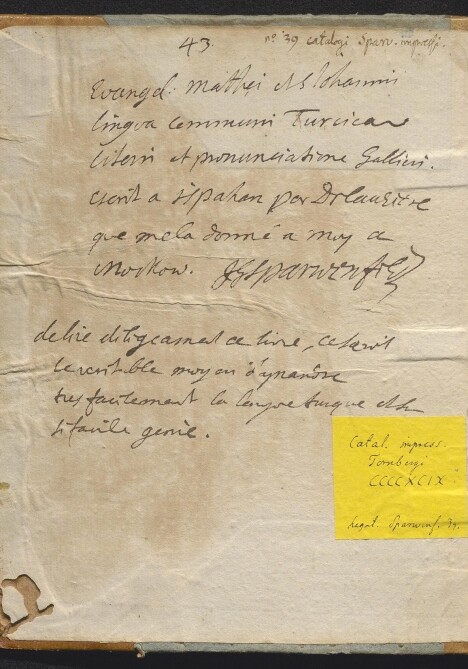 43
no 39 catalogi Sparw. impressi.
Evangel: Mathei et S Iohannis
lingva communi Turcica
literis et pronunciatione Gallici.
escrit a Ispahan par
que me la donné a moy a
Moskow. JGSparwenfeld
de lire diligeament ce livre, ce seroit
le veritable moyen d'aprandre
tres facilement la langue turque et
si facile genie.
Catal. impress.
Tornbergi
CCCCXCIX
Legat. Sparwenf. 39.